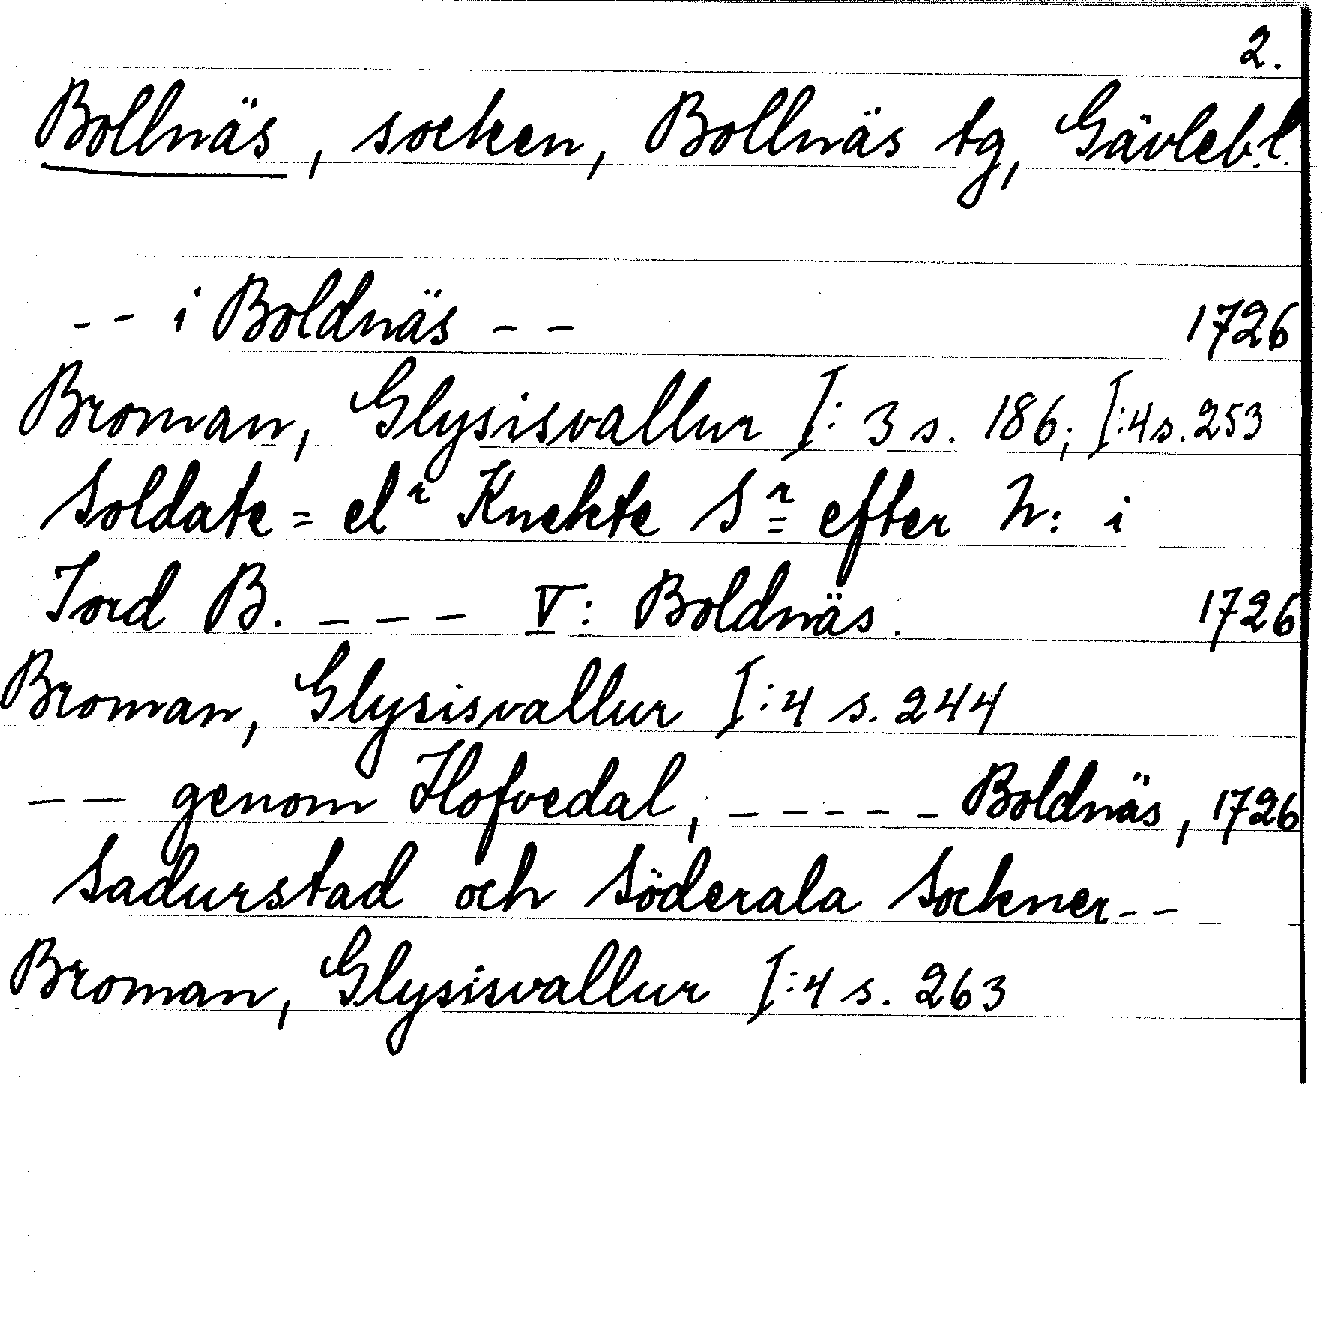 2.
Bollnäs, socken, Bollnäs tg, Gävleb.l.
-- i Boldnäs -- 1726
Broman, Glysisvallur I: 3 s. 186; I:4 s. 253
Soldate = elr Knekte Sr = efter N: i
Jord B. --- V: Boldnäs. 1726
Broman, Glysisvallur I:4 s. 244
-- genom Hofvedal, ----- Boldnäs, 1726
Sadurstad och Söderala Sockner--
Broman, Glysisvallur I:4 s. 263